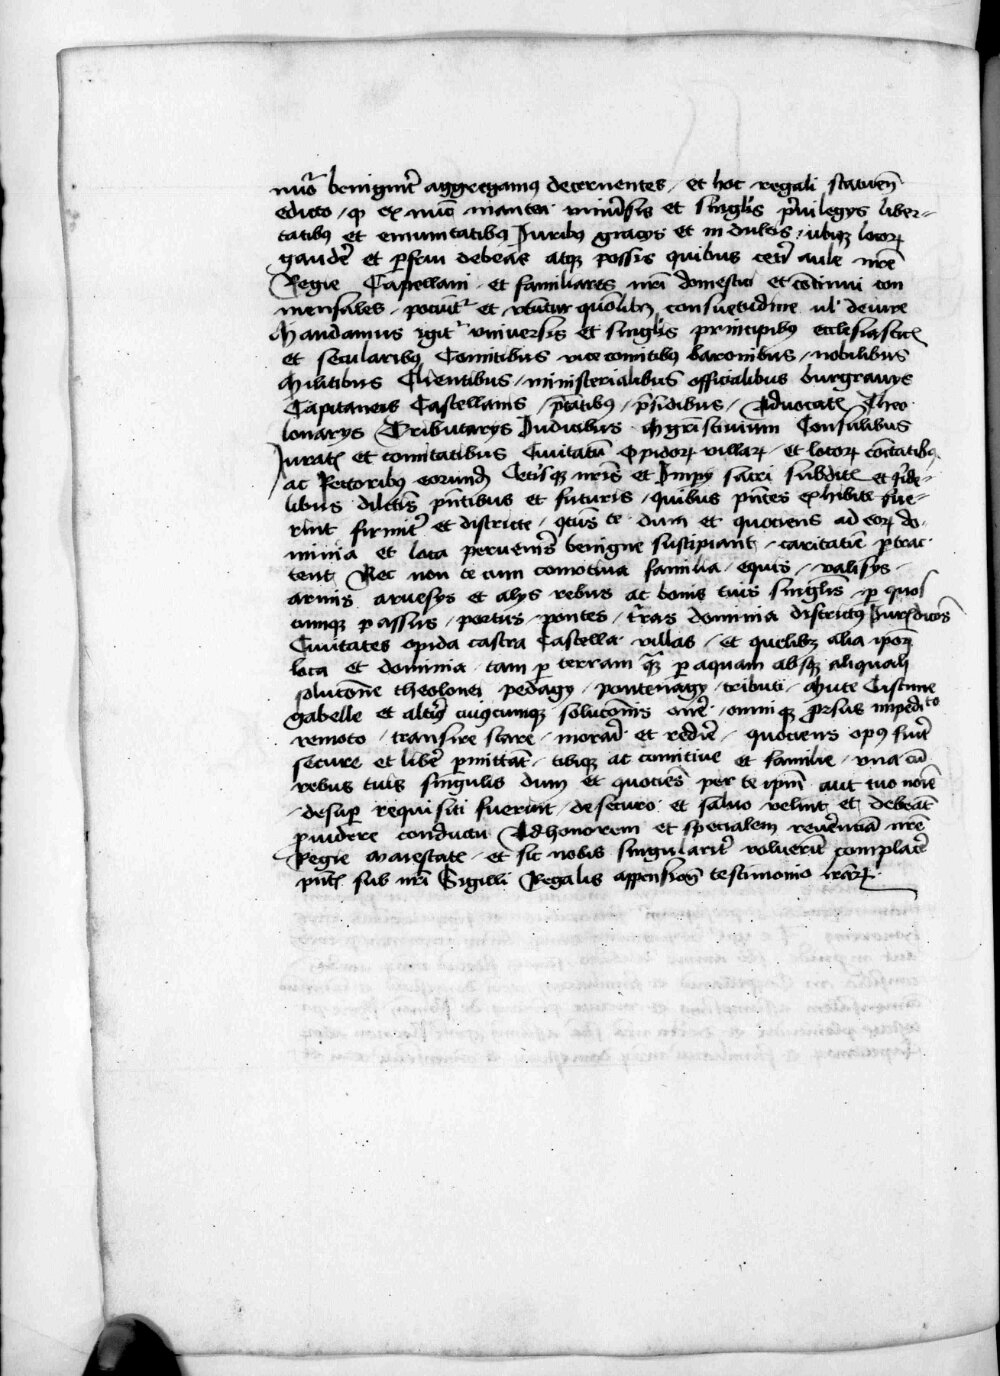 mus benignit aggregamus decernentes / et hoc regali statuen
edicto / qp ex nunc inantea univsis et singlis privilegys liber-
tatibus et emunitatibus Juribus gracys et indultis / ubiqz locorz
gaudere et pfrui debeas atqz possis quibus ceti aule nre
Regie Capellani et familiares nri domestici et cotinui con
mensales / pociunt et utuntur quolibz consuetudine vl de iure
Mandamus igit universis et singlis principibus ecclesiastic
et secularibus Comitibus vice comitibus baronibus / nobilibus
Militibus Clientibus / ministerialibus officialibus burgravys
Capitaneis Castellanis / ptatibus / psidibus / Advocatis Theo
lonarys Tributarys Judicibus Mgri scivium Consulibus
Juratis et comitatibus Civitatu Opidorz villarz et locorz coitatibus
ac Rectoribus eorund Cetisqz nris et Impy sacri subditis et fide-
libus dilctis pntibus et futuris / quibus pntes exhibite fue-
rint firmit et districte / qtus te dum et quociens ad eorz do-
minia et loca perveneris benigne suscipiant / caritatie ptrac
tent Nec non te cum comitiva familia / equis / valisys
armis arnesys et alys rebus ac bonis tuis singlis / p quos
cumqz passus / portus / pontes / tras dominia districtus Jurisdicoes
Civitates opida castra Castella villas / et quelibz alia ipors
loca et dominia tam p terram qz p aquam absqz aliquali
solucone theolonei pedagy / pontenagy / tributi / Mute Cistine
gabelle et altius cuiuscumqz solucois onere / omniqz prsus impedito
remoto / transire stare / morari et redire / quociens opus fuit
secure et libe pmittat / tibiqz ac comitive et familie / una cu
rebus tuis singulis dum et quocies per te ipm aut tuo noie
/ desup requisiti fuerint / de securo et salvo velint et debeat
pvidere conductu Ad honorem et specialem reverencia nre
Regie Maiestatis / et sic nobis singularit voluerit complacere
pntz sub nri Sigilli Regalis appensione testimonio lrarz